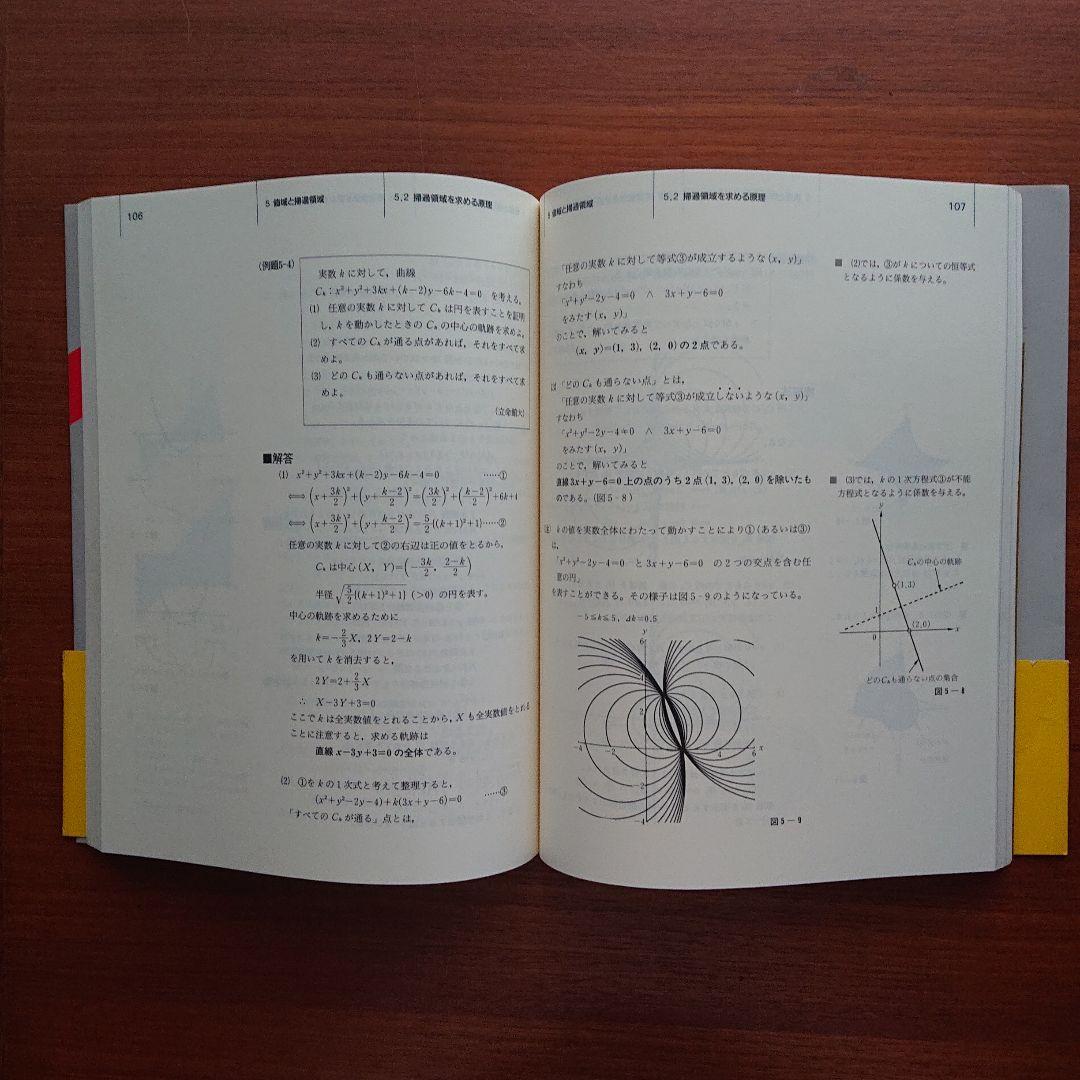 106
5 値域と掃過領域
5.2 掃過領域を求める原理
(例題5-4)
実数 k に対して, 曲線
Cₖ : x²+y²+3kx+(k−2)y−6k−4=0 を考える.
(1) 任意の実数 k に対して Cₖ は円を表すことを証明
し, k を動かしたときの Cₖ の中心の軌跡を求めよ.
(2) すべての Cₖ が通る点があれば, それをすべて求
めよ.
(3) どの Cₖ も通らない点があれば, それをすべて求
めよ.
(立命館大)
■解答
(1) x²+y²+3kx+(k−2)y−6k−4=0 ……①
⟺ (x+3k/2)²+(y+(k−2)/2)²=(3k/2)²+((k−2)/2)²+6k+4
⟺ (x+3k/2)²+(y+(k−2)/2)²=5/2{(k+1)²+1}……②
任意の実数 k に対して②の右辺は正の値をとるから,
Cₖ は中心 (X, Y)=(−3k/2, (2−k)/2)
半径 √(5/2{(k+1)²+1}) (>0) の円を表す.
中心の軌跡を求めるために
k=−2/3X, 2Y=2−k
を用いて k を消去すると,
2Y=2+2/3X
∴ X−3Y+3=0
ここで k は全実数値をとれることから, X も全実数値をとれる
ことに注意すると, 求める軌跡は
直線 x−3y+3=0 の全体である.
(2) ①を k の1次式と考えて整理すると,
(x²+y²−2y−4)+k(3x+y−6)=0 ……③
「すべての Cₖ が通る」点とは,
値域と掃過領域
5.2 掃過領域を求める原理
107
「任意の実数 k に対して等式③が成立するような (x, y)」
すなわち
「x²+y²−2y−4=0 ∧ 3x+y−6=0
をみたす (x, y)」
のことで, 解いてみると
(x, y)=(1, 3), (2, 0) の2点である.
「どの Cₖ も通らない点」とは,
「任意の実数 k に対して等式③が成立しないような (x, y)」
すなわち
「x²+y²−2y−4≠0 ∧ 3x+y−6=0
をみたす (x, y)」
のことで, 解いてみると
直線 3x+y−6=0 上の点のうち2点 (1, 3), (2, 0) を除いたも
のである. (図5−8)
k の値を実数全体にわたって動かすことにより①(あるいは③)
は,
「x²+y²−2y−4=0 と 3x+y−6=0 の2つの交点を含む任
意の円」
を表すことができる. その様子は図5−9のようになっている.
−5≦k≦5, Δk=0.5
y
6
2
−4
−2
2
4
6
x
−2
−4
図5−9
■ (2)では, ③が k についての恒等式
となるように係数を与える.
■ (3)では, k の1次方程式③が不能
方程式となるように係数を与える.
y
Cₖの中心の軌跡
(1,3)
1
(2,0)
0
x
どのCₖも通らない点の集合
図5−8